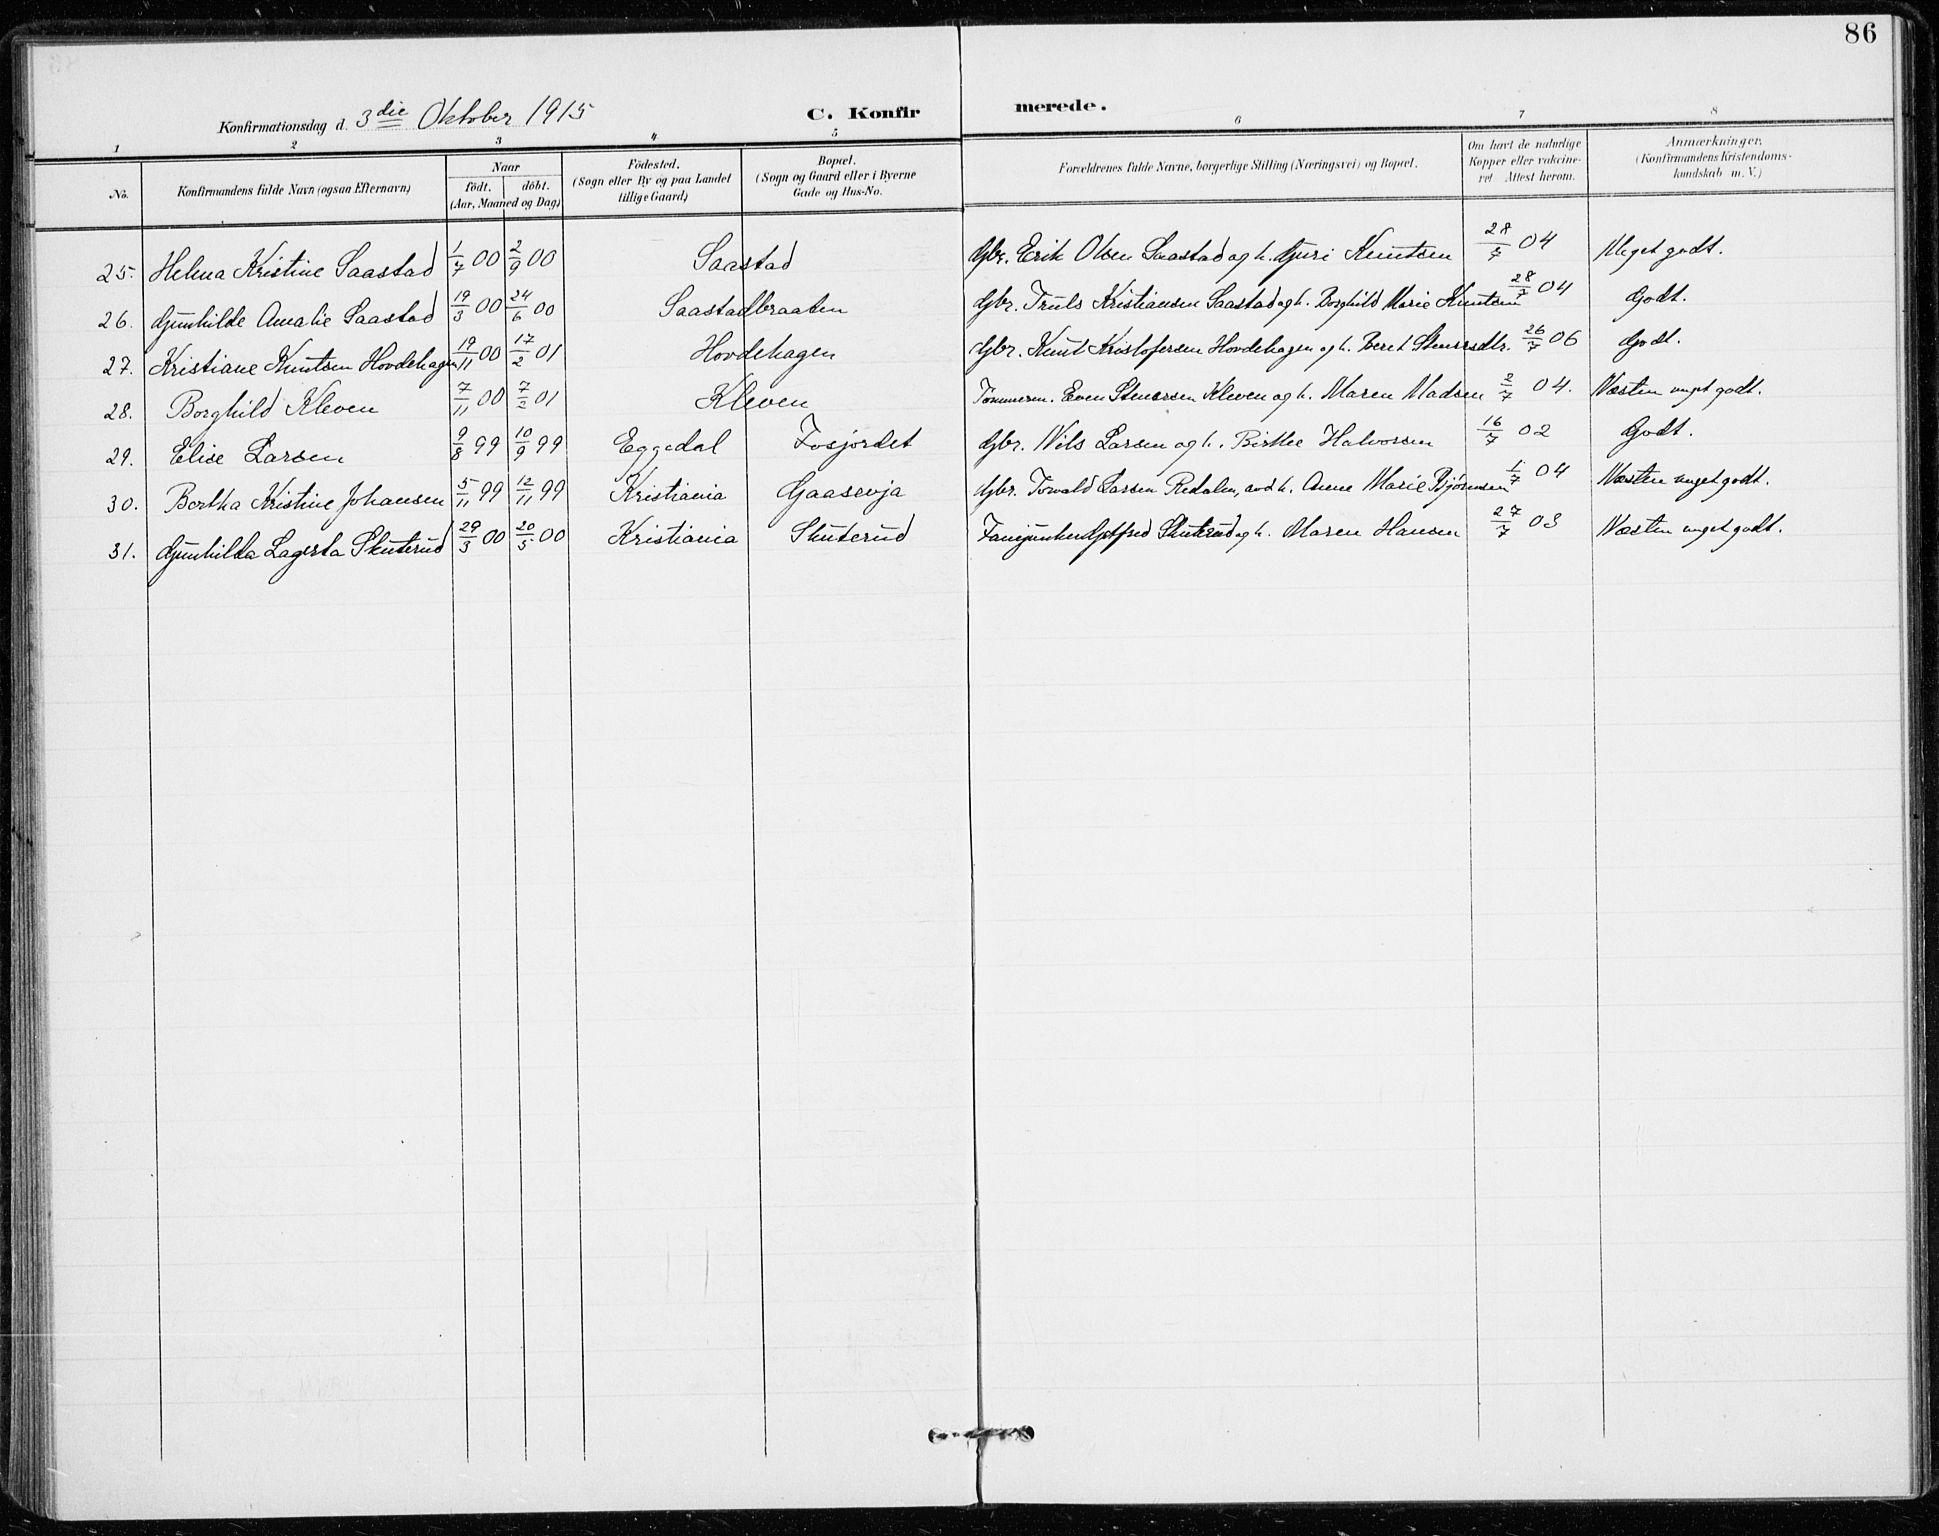 86
Konfirmationsdag d. 3die Oktober 1915 C. Konfir merede.
1 2 3 4 5 6 7 8
No. Konfirmandens fulde Navn (ogsaa Efternavn) Naar født. døbt. (Aar, Maaned og Dag) Fødested. (Sogn eller By og paa Landet tillige Gaard) Bopæl. (Sogn og Gaard eller i Byerne Gade og Hus-No. Forældrenes fulde Navne, borgerlige Stilling (Næringsvei) og Bopæl. Om havt de naturlige Kopper eller vakcineret Attest herom. Anmærkninger. (Konfirmandens Kristendomskundskab m. V.)
25. Helena Kristine Saastad 1/7 00 2/9 00 Saastad Gbr. Erik Olsen Saastad og h. Guri Knutsen 28/7 04 Meget godt.
26. Gunhilde Amalie Saastad 19/3 00 24/6 00 Saastadbraaten Gbr. Truls Kristiansen Saastad og h. Borghild Marie Knutsen 28/7 04 Godt.
27. Kristiane Knutsen Hovdehagen 19/11 00 17/2 01 Hovdehagen Gbr. Knut Kristofersen Hovdehagen og h. Beret Stenersdtr. 26/7 06 Godt.
28. Borghild Kleven 7/11 00 7/2 01 Kleven Tømmerm. Even Stenersen Kleven og h. Maren Madsen 2/7 04. Næsten meget godt.
29. Elise Larsen 9/8 99 10/9 99 Eggedal Fosjordet Gbr. Nils Larsen og h. Birthe Halvorsen 16/7 02 Godt.
30. Bertha Kristine Johansen 5/11 99 12/11 99 Kristiania Gaasevja Gbr. Torvald Larsen Redalen, og h. Anne Marie Bjørnsen 1/7 04 Næsten meget godt.
31. Gunhilda Lagerta Skuterud 29/3 00 20/5 00 Kristiania Skuterud Fanejunker Gotfred Skuterud og h. Maren Hansen 27/7 03 Næsten meget godt.